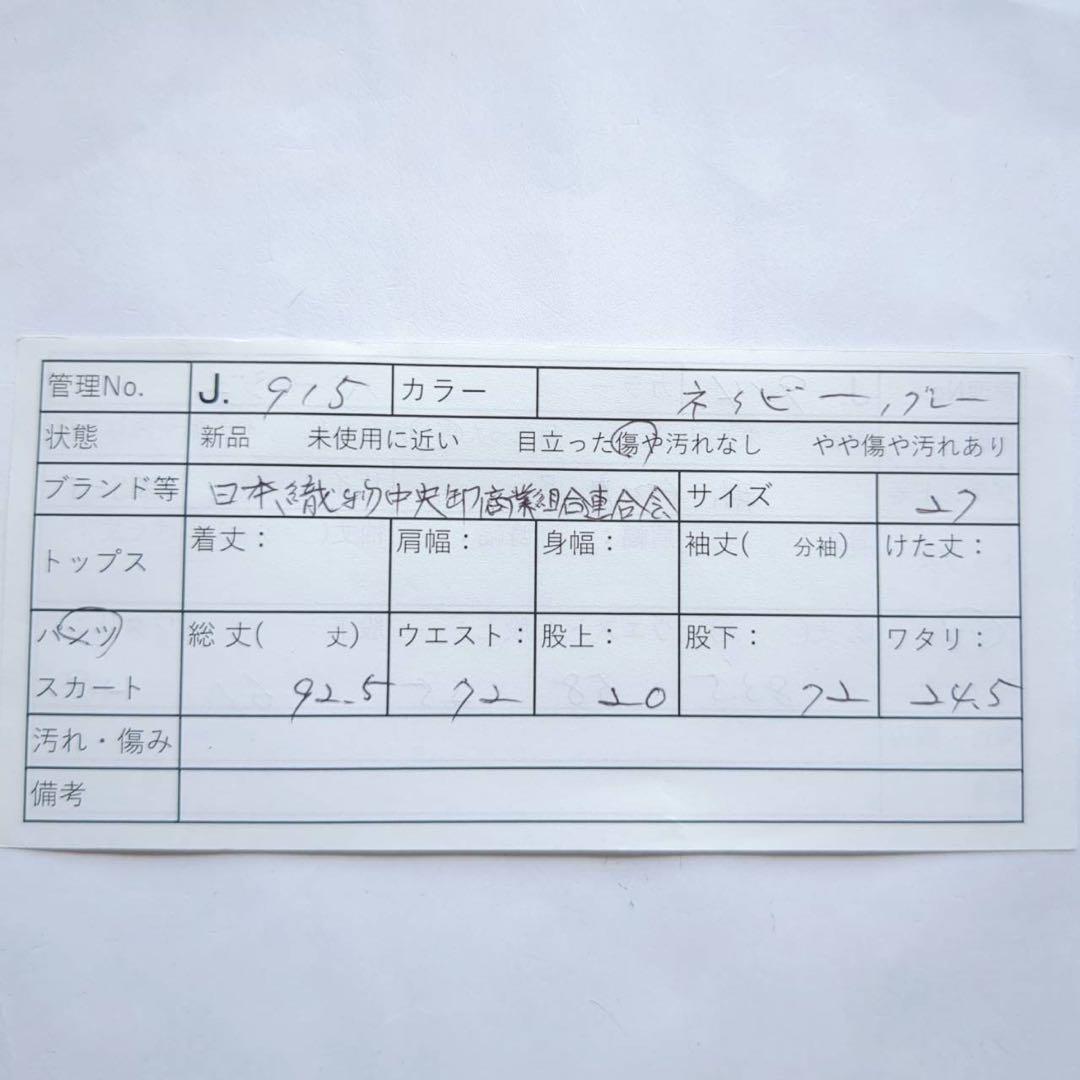 管理No. J. 915 カラー ネイビー,グレー
状態 新品 未使用に近い 目立った傷や汚れなし やや傷や汚れあり
ブランド等 日本織物中央卸商業組合連合会 サイズ 27
トップス 着丈: 肩幅: 身幅: 袖丈( 分袖) けた丈:
パンツ 総丈( 丈) ウエスト: 股上: 股下: ワタリ:
スカート 92.5 72 20 72 24.5
汚れ・傷み
備考